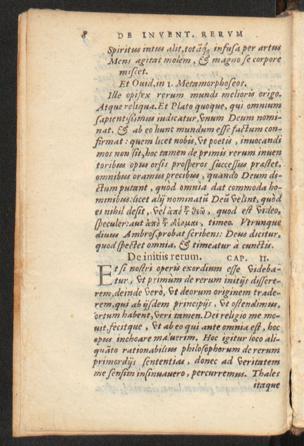 8 DE INVENT. RERVM
Spiritus intus alit, totáq; infusa per artus
Mens agitat molem, & magno se corpore
miscet.
Et Ouid. in 1. Metamorphoseos.
Ille opifex rerum mundi melioris origo.
Atque reliqua. Et Plato quoque, qui omnium
sapientissimus iudicatur, vnum Deum nomi-
nat, & ab eo hunc mundum esse factum con-
firmat: quem licet nobis, vt poetis, inuocandi
mos non sit, hoc tamen de primis rerum inuen
toribus opus orsis prosperos successus præstet,
omnibus oramus precibus, quando Deum di-
ctum putant, quòd omnia dat commoda ho-
minibus: licet alij nominatū Deū velint, quòd
ei nihil desit, vel ἀπὸ τ̃ , quod est video,
speculor: aut ἀπὸ τ̃ , timeo. Vtrunque
diuus Ambros. probat scribens: Deus dicitur,
quòd spectet omnia, & timeatur à cunctis.
De initiis rerum. CAP. II.
Et si nostri operis exordium esse videba-
tur, vt primùm de rerum initijs dissere-
rem, deinde verò, vt deorum originem trade-
rem, qui ab ijsdem principijs, vt ostendimus,
ortum habent, veri tamen Dei religio me mo-
uit, fecitque, vt ab eo qui ante omnia est, hoc
opus inchoare mauerim. Hoc igitur loco ali-
quāto rationabilius philosophorum de rerum
primordijs sententias, donec ad veritatem
me sensim insinuauero, percurremus. Thales
itaque